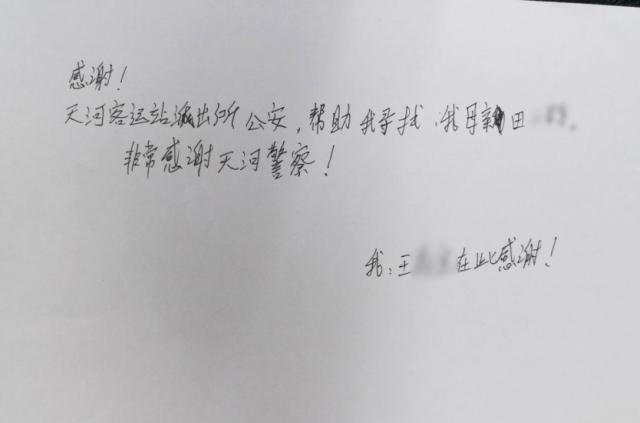 感谢!
天河客运站派出所公安,帮助我寻找.我母亲田
非常感谢天河警察!
我:王 在此感谢!